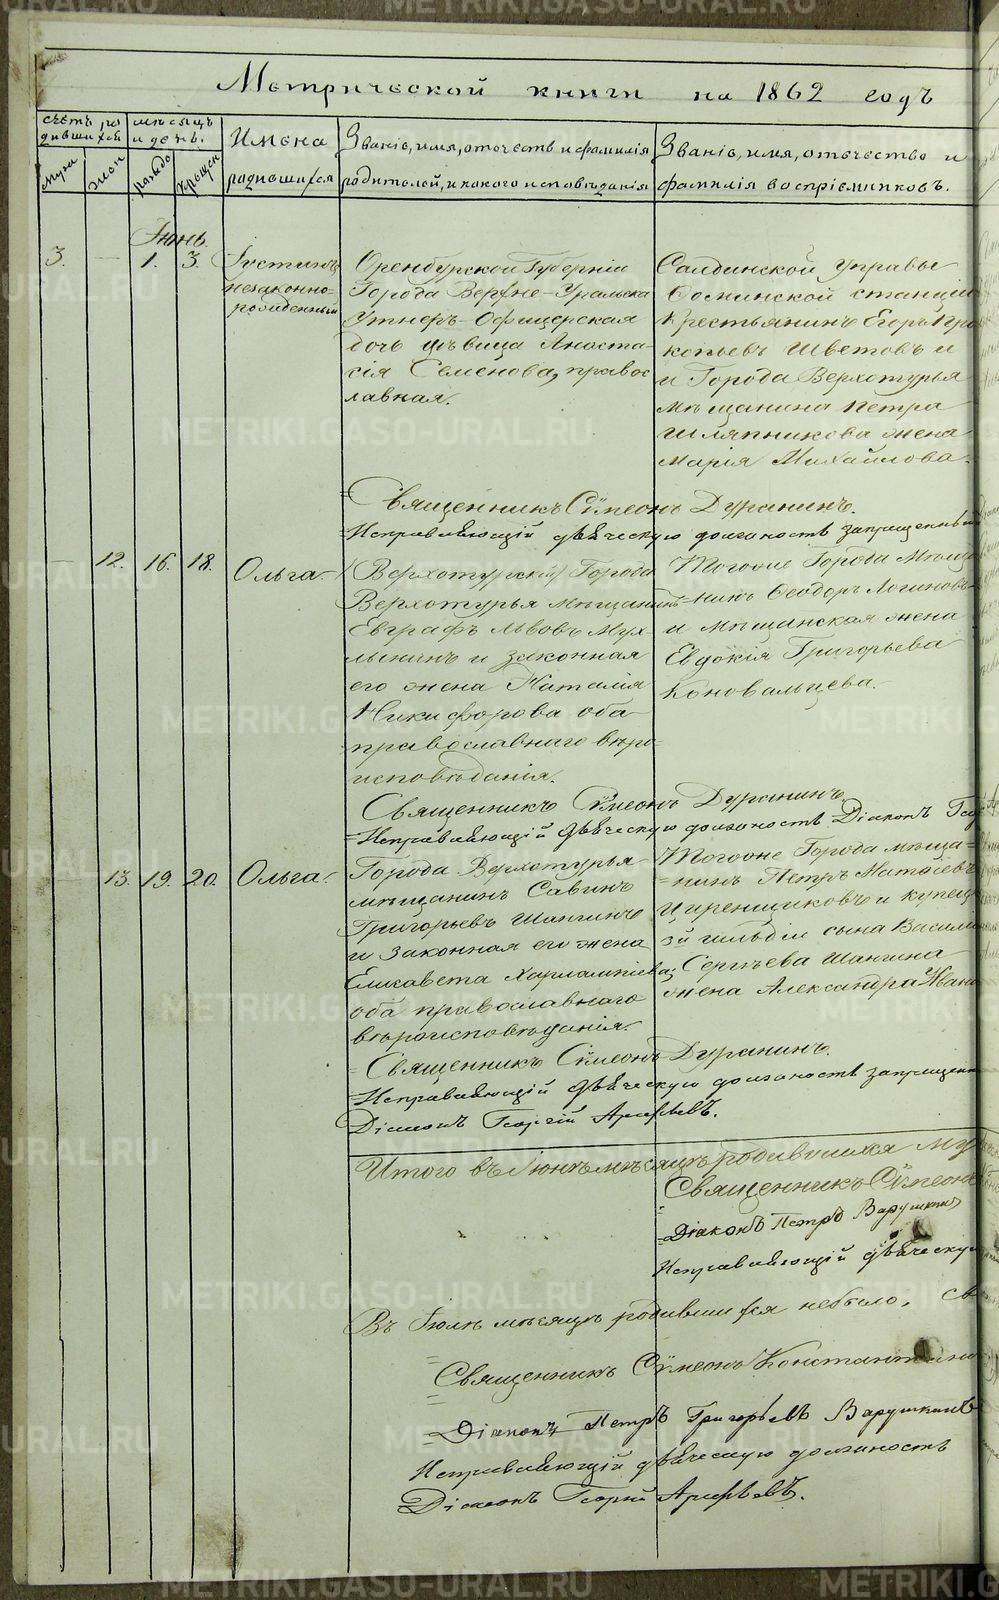 Метрической книги на 1862 годъ
счетъ ро
дившихся
мѣсяцъ
и день.
Имена
родившихся
Званіе, имя, отчество и фамилія
родителей, и какого исповѣданія
Званіе, имя, отчество и
фамилія воспріемниковъ.
муж
жен
рожд
крещ
Іюнь.
3. — 1. 3.
Іустинъ
незаконно-
рожденный
Оренбурской Губерніи
Города Верхне-Уральска
Унтеръ-Офицерская
дочь дѣвица Анаста-
сія Семенова, правос
лавная.
Салдинской управы
станціи
крестьянинъ Егоръ Про
копьевъ Шветовъ и
и Города Верхотурья
мѣщанина Петра
Шляпникова жена
Марія Михайлова.
Священникъ Сѵмеонъ Дуранинъ.
Исправляющій дьяческую должность запрещенный
— 12. 16. 18.
Ольга.
Города
Верхотурья мѣщанинъ
Евграфъ Львовъ Мух-
лынинъ и законная
его жена Наталія
Никифорова оба
православнаго вѣро-
исповѣданія.
Тогоже Города Мѣща
нинъ Ѳеодоръ Логиновъ
и мѣщанская жена
Евдокія Григорьева
Коновальцева.
Священникъ Сѵмеонъ Дуранинъ
Исправляющій дьяческую должность Діаконъ Геор
13. 19. 20.
Ольга.
Города Верхотурья
мѣщанинъ Савинъ
Григорьевъ Шангинъ
и законная его жена
Елисавета Харлампіева,
оба православнаго
вѣроисповѣданія.
Тогоже Города мѣща=
=нинъ Петръ Матѳіевъ
и купец
3й гильдіи сына Васили
Сергѣева Шангина
жена Александра Ивано
Священникъ Сѵмеонъ Дуранинъ.
Исправляющій дьяческую должность запрещен
Діаконъ Георгій Арефьевъ.
Итого въ Іюнѣ мѣсяцѣ родившихся му
Священникъ Сѵмеонъ
Діаконъ Петръ Варушкинъ
Исправляющій дьяческую
Въ Іюлѣ мѣсяцѣ родившихся небыло, св
Священникъ Сѵмеонъ Константино
Діаконъ Петръ Григорьевъ Варушкинъ
Исправляющій дьяческую должность
Діаконъ Георгій Арефьевъ.